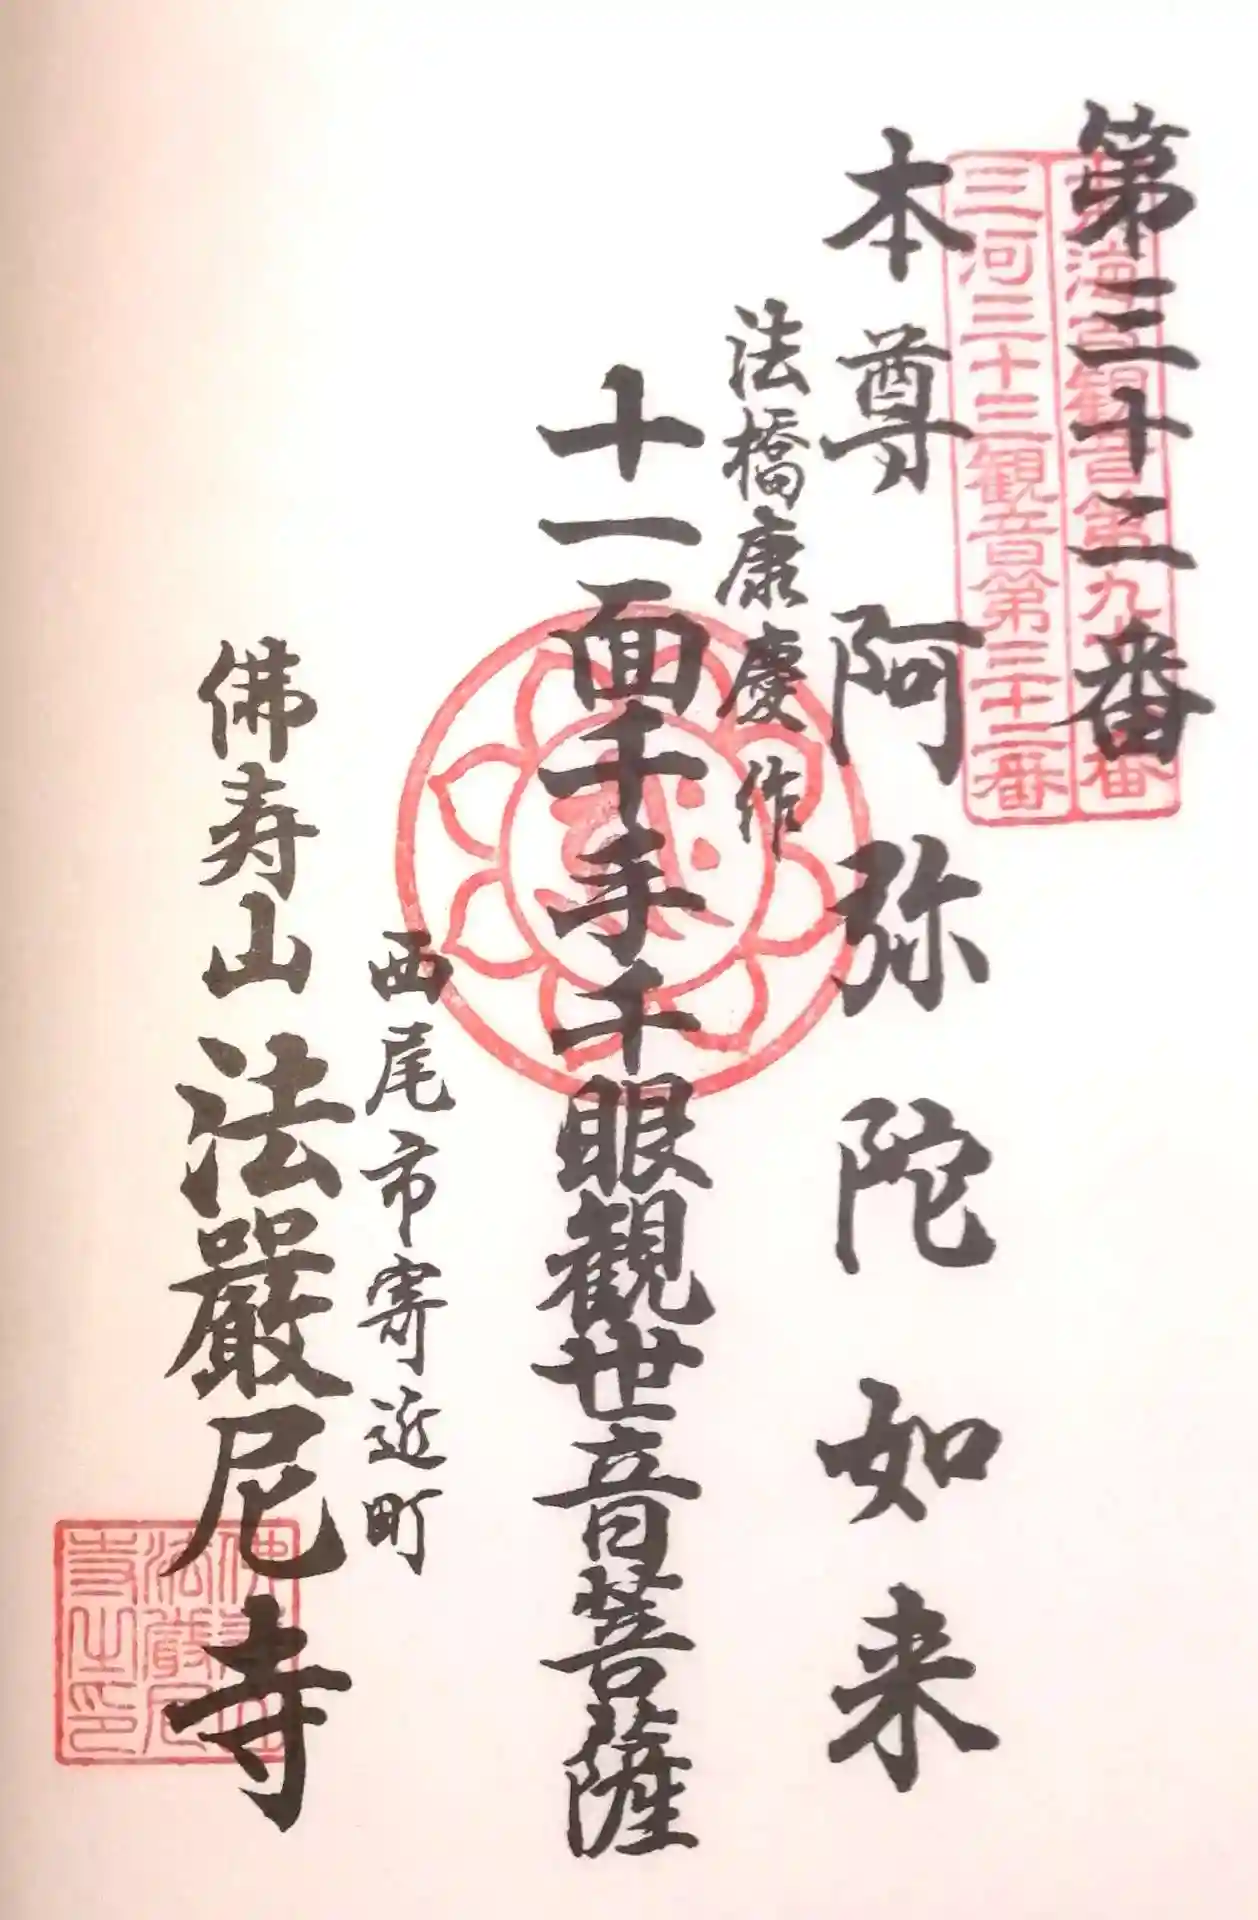 第三十二番
海百観音第九 番
三河三十三観音第三十二番
本尊 阿弥陀如来
法橋康慶作
十一面千手千眼観世音菩薩
西尾市寄近町
佛寿山 法嚴尼寺
佛寿山
法嚴尼
寺之印